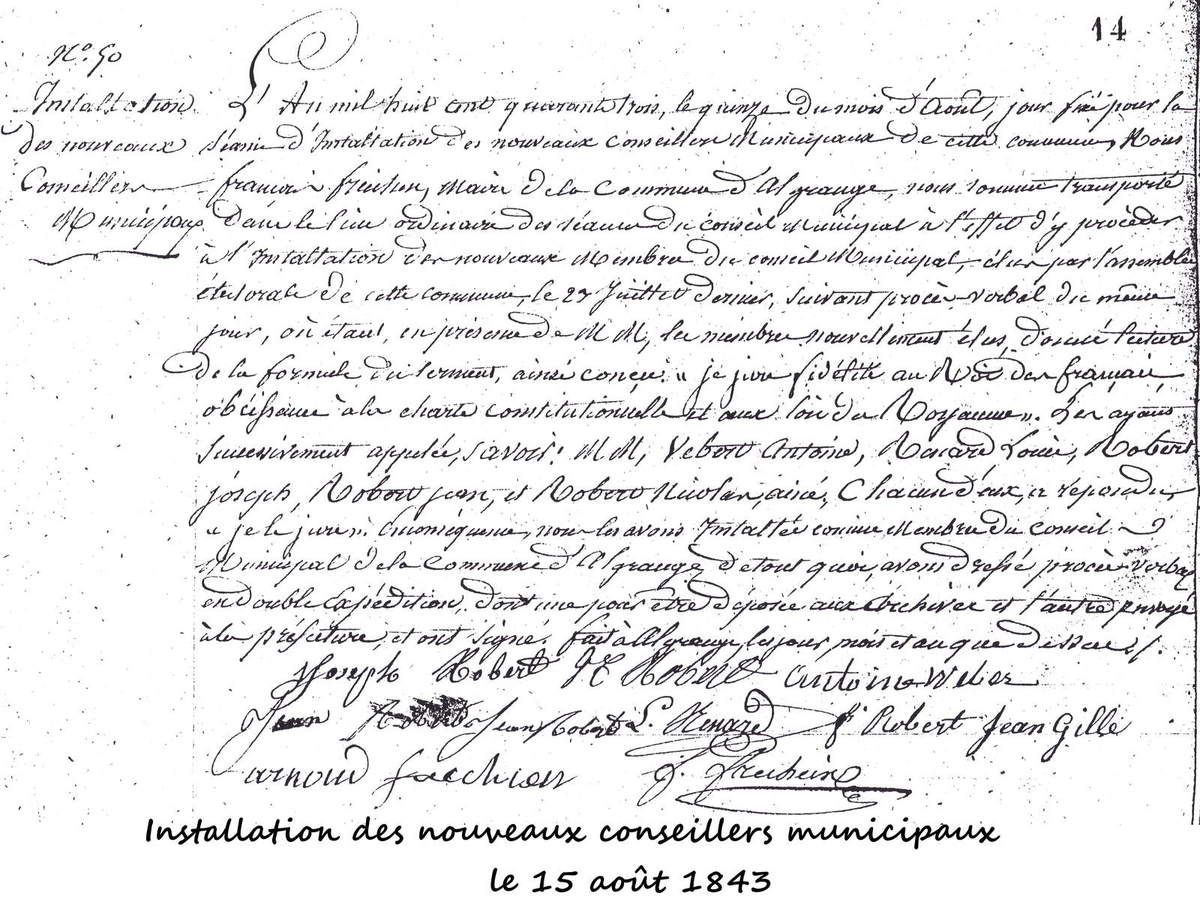 14
N° 50
Installation
des nouveaux
Conseillers
Municipaux
L'An mil huit cent quarante trois, le quinze du mois d'Août, jour fixé pour la
séance d'Installation des nouveaux Conseillers Municipaux de cette commune, Nous
françois, Maire de la Commune d'Algrange, nous sommes transporté
dans le lieu ordinaire des séances du conseil Municipal à l'effet d'y procéder
à l'Installation des nouveaux Membres du conseil Municipal, élus par l'assemblée
électorale de cette commune, le Juillet dernier, suivant procès-verbal du même
jour, où étant, en présence de MM, les membres nouvellement élus, donné lecture
de la formule du serment, ainsi conçu: « je jure fidélité au Roi des français
obéissance à la charte constitutionnelle et aux lois du Royaume ». Les ayans
successivement appelés, savoir: MM, Veber Antoine, Renard Louis, Robert
joseph, Robert jean, et Robert Nicolas, ainé, Chacun d'eux, a répondu
« je le jure ». En conséquence, nous les avons Installés comme Membres du Conseil
Municipal de la Commune d'Algrange, de tout quoi, avons dressé procès-verbal
en double Expédition, dont une pour être déposée aux Archives et l'autre envoyé
à la préfecture, et ont signé. fait à Algrange, les jour, mois et an que dessus ./.
Joseph Robert N Robert antoin Weber
Jean Robert Jean Robert L. Renard Robert Jean Gille
arnoud
Installation des nouveaux conseillers municipaux
le 15 août 1843